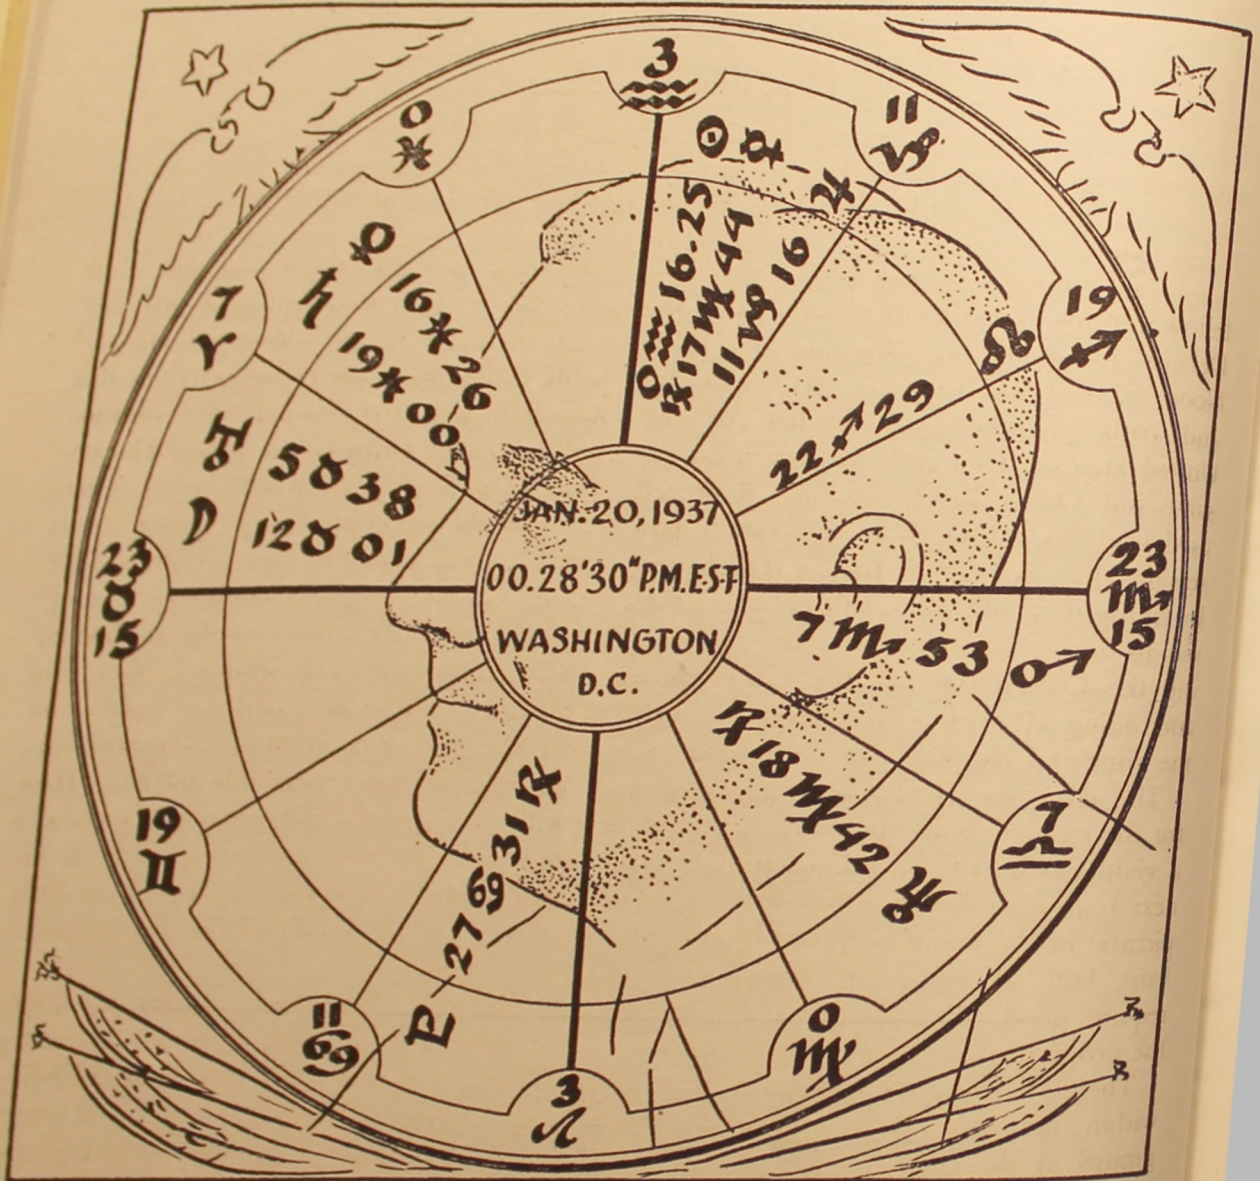 3
♒
11
♑
19
♐
23
♏
15
7
♎
0
♍
3
♌
11
♋
19
♊
23
♉
15
7
♈
0
♓
☉ 0 ♒ 16.25
☿ ℞ 17 ♍ 44
♃ 11 ♑ 16
☊ 22 ♐ 29
7 ♏ 53 ♂
℞ 18 ♍ 42 ♆
♇ 27 ♋ 31 ℞
☽ 12 ♉ 01
♅ 5 ♉ 38
♄ 19 ♓ 00
♀ 16 ♓ 26
JAN. 20, 1937
00.28'30" P.M.E.S.T
WASHINGTON
D.C.